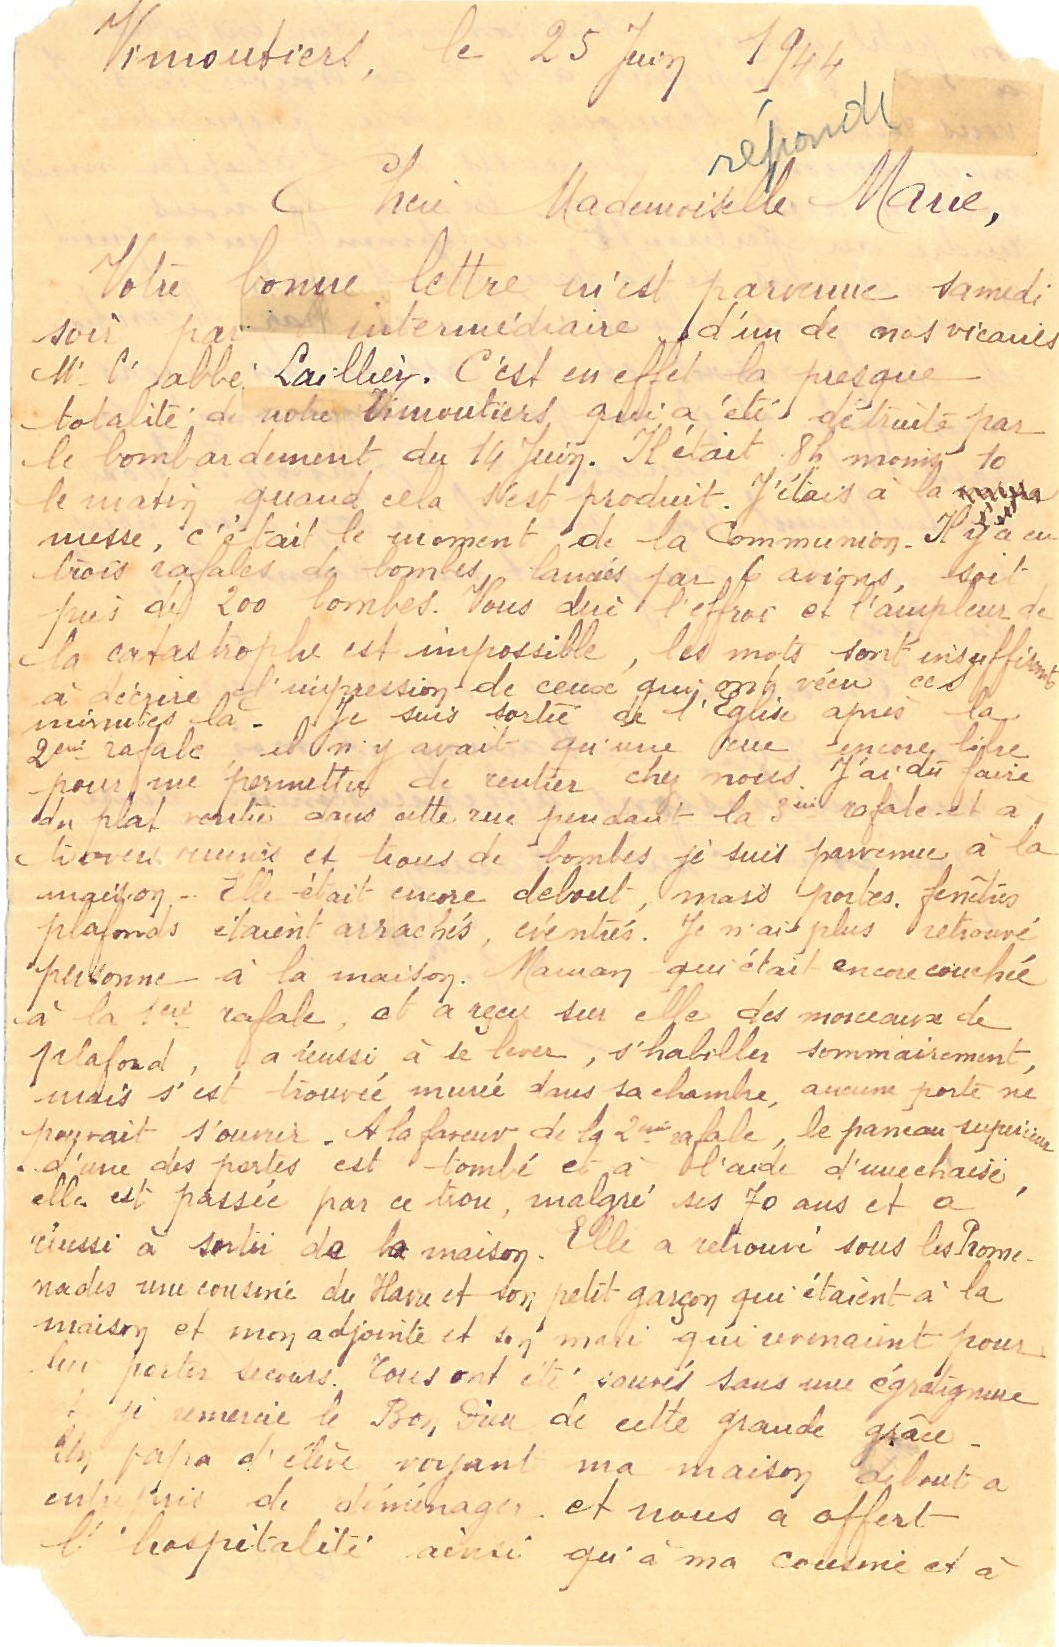 Vimoutiers, le 25 Juin 1944
répondu
Chère Mademoiselle Marie,
Votre bonne lettre m'est parvenue samedi
soir par intermédiaire d'un de nos vicaires
Mr l'abbé Laillier. C'est en effet la presque
totalité de notre Vimoutiers qui a été détruite par
le bombardement du 14 Juin. Il était 8h moins 10
le matin quand cela s'est produit. J'étais à la
messe, c'était le moment de la Communion. Il y a eu
trois rafales de bombes, lancées par 6 avions, soit
près de 200 bombes. Vous dire l'effroi et l'ampleur de
la catastrophe est impossible, les mots sont insuffisants
à décrire l'impression de ceux qui ont vécu ces
minutes là. Je suis sortie de l'Eglise après la
2ème rafale il n'y avait qu'une rue encore libre
pour me permettre de rentrer chez nous. J'ai dû faire
du plat ventre dans cette rue pendant la 3ème rafale et à
travers ruines et trous de bombes je suis parvenue à la
maison. Elle était encore debout, mais portes, fenêtres
plafonds étaient arrachés, éventrés. Je n'ai plus retrouvé
personne à la maison. Maman qui était encore couchée
à la 1ère rafale, et a reçu sur elle des morceaux de
plafond, a réussi à se lever, s'habiller sommairement,
mais s'est trouvée murée dans sa chambre, aucune porte ne
pouvait s'ouvrir. A la faveur de la 2ème rafale, le panneau supérieur
d'une des portes est tombé et à l'aide d'une chaise,
elle est passée par ce trou, malgré ses 70 ans et a
réussi à sortir de la maison. Elle a retrouvé sous les Prome-
nades une cousine du Havre et son petit garçon qui étaient à la
maison et mon adjointe et son mari qui revenaient pour
lui porter secours. Tous ont été sauvés sans une égratignure
et je remercie le Bon Dieu de cette grande grâce.
Un papa d'élève voyant ma maison debout a
entrepris de déménager et nous a offert
l'hospitalité ainsi qu'à ma cousine et à